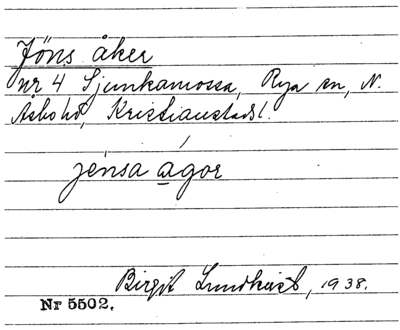 Jöns åker
nr 4 Sjunkamossa, Rya sn, N.
Åsbo hd, Kristianstads l.
jènsa ågor
Birgit Lundkvist, 1938.
Nr 5502.